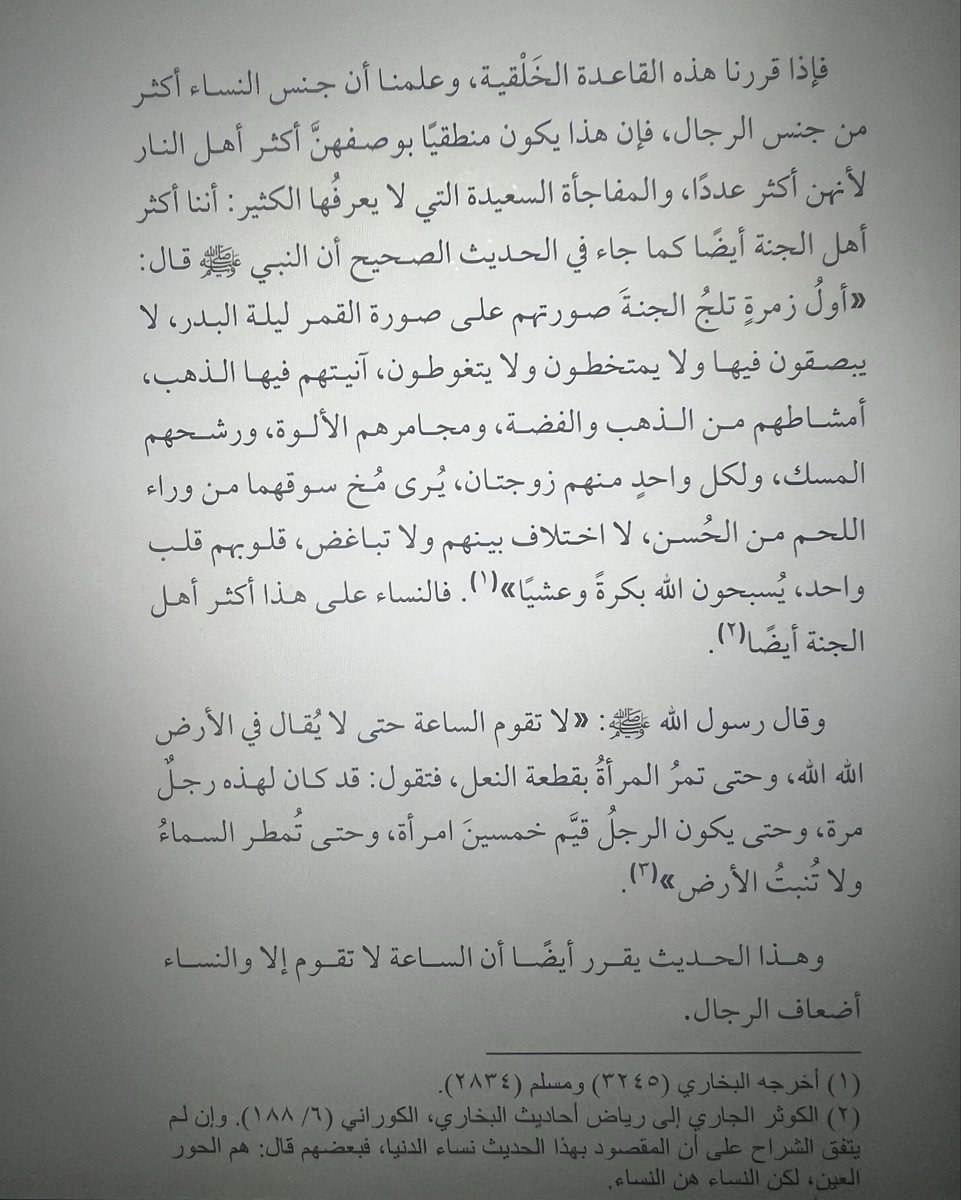 فإذا قررنا هذه القاعدة الخَلْقية، وعلمنا أن جنس النساء أكثر
من جنس الرجال، فإن هذا يكون منطقيًا بوصفهنَّ أكثر أهل النار
لأنهن أكثر عددًا، والمفاجأة السعيدة التي لا يعرفُها الكثير: أننا أكثر
أهل الجنة أيضًا كما جاء في الحديث الصحيح أن النبي ﷺ قال:
«أولُ زمرةٍ تلجُ الجنةَ صورتهم على صورة القمر ليلة البدر، لا
يبصقون فيها ولا يمتخطون ولا يتغوطون، آنيتهم فيها الذهب،
أمشاطهم من الذهب والفضة، ومجامرهم الألوة، ورشحهم
المسك، ولكل واحدٍ منهم زوجتان، يُرى مُخ سوقهما من وراء
اللحم من الحُسن، لا اختلاف بينهم ولا تباغض، قلوبهم قلب
واحد، يُسبحون الله بكرةً وعشيًا»(١). فالنساء على هذا أكثر أهل
الجنة أيضًا(٢).
وقال رسول الله ﷺ: «لا تقوم الساعة حتى لا يُقال في الأرض
الله الله، وحتى تمرُ المرأةُ بقطعة النعل، فتقول: قد كان لهذه رجلٌ
مرة، وحتى يكون الرجلُ قيَّم خمسينَ امرأة، وحتى تُمطر السماءُ
ولا تُنبتُ الأرض»(٣).
وهذا الحديث يقرر أيضًا أن الساعة لا تقوم إلا والنساء
أضعاف الرجال.
(١) أخرجه البخاري (٣٢٤٥) ومسلم (٢٨٣٤).
(٢) الكوثر الجاري إلى رياض أحاديث البخاري، الكوراني (٦/ ١٨٨). وإن لم
يتفق الشراح على أن المقصود بهذا الحديث نساء الدنيا، فبعضهم قال: هم الحور
العين، لكن النساء هن النساء.